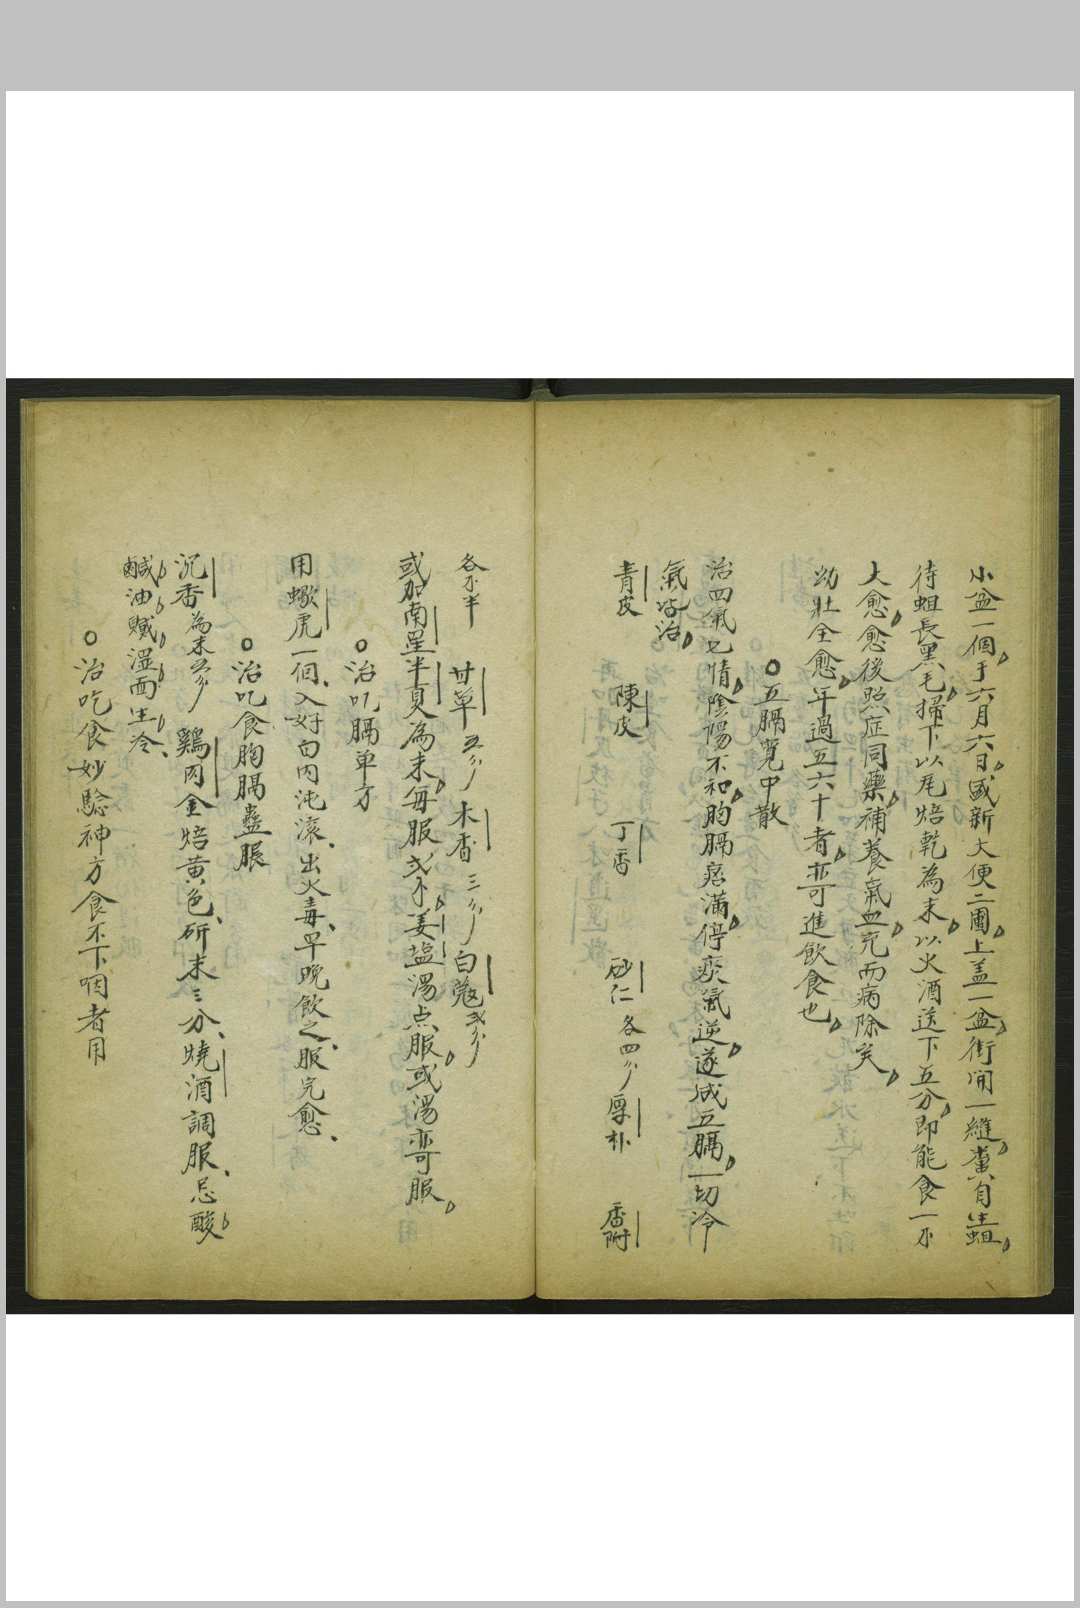 小盆一個于六月六日盛新大便二圃上盖一盆街開一縫糞自生蛆
待蛆長黑毛掃下以尾焙乾為末以火酒送下五分即能食一小
大愈愈後照症同藥補養氣血充而病除矣
幼壯全愈年過五六十者亦可進飲食也
五膈寬中散
治四氣七情陰陽不和胸膈痞滿停痰氣逆遂成五膈一切冷
氣皆治
青皮 陳皮 丁香 砂仁各四 厚朴 香附
各半 甘草五 木香三 白蔻
或加南星半夏為末每服 姜塩湯点服或湯亦可服
治吃膈单方
用蠍虎一個入好白肉沌滚出火毒早晚飲之服完愈
治吃食胸膈蠱脹
沉香為末 鷄肉金焙黄色研末三分燒酒調服忌酸
鹹油膩濕面生冷
治吃食妙驗神方食不下咽者用